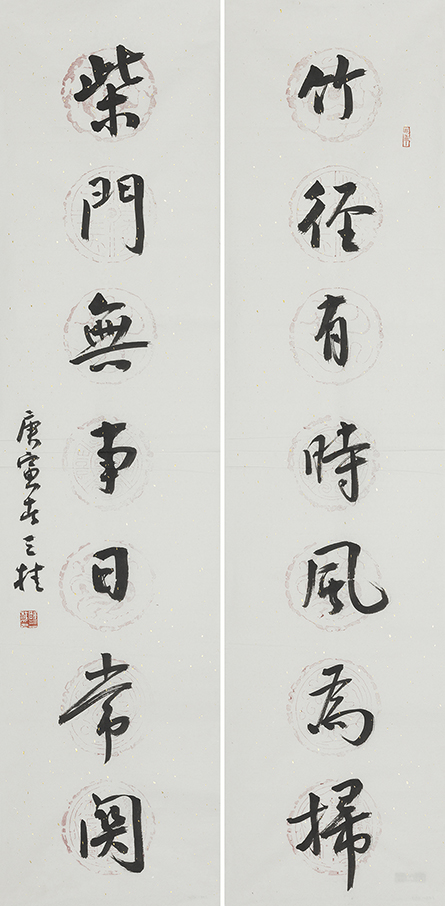 竹徑有時風為掃
柴門無事日常関
庚寅春三桂